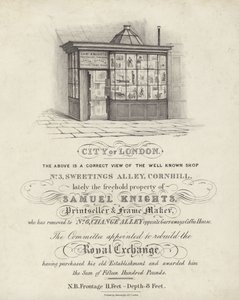 CITY OF LONDON.
THE ABOVE IS A CORRECT VIEW OF THE WELL KNOWN SHOP
No. 3, SWEETINGS ALLEY, CORNHILL,
lately the freehold property of
SAMUEL KNIGHTS,
Printseller & Frame Maker,
who has removed to No. 6, CHANGE ALLEY opposite Garraway's Coffee House.
The Committee appointed to rebuild the
Royal Exchange
having purchased his old Establishment and awarded him
the Sum of Fifteen Hundred Pounds.
N.B. Frontage 11 Feet - Depth 8 Feet.